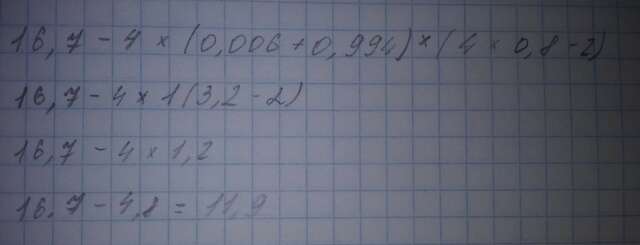 16,7 - 4 × (0,006 + 0,994) × (4 × 0,8 - 2)
16,7 - 4 × 1 (3,2 - 2)
16,7 - 4 × 1,2
16,7 - 4,8 = 11,9